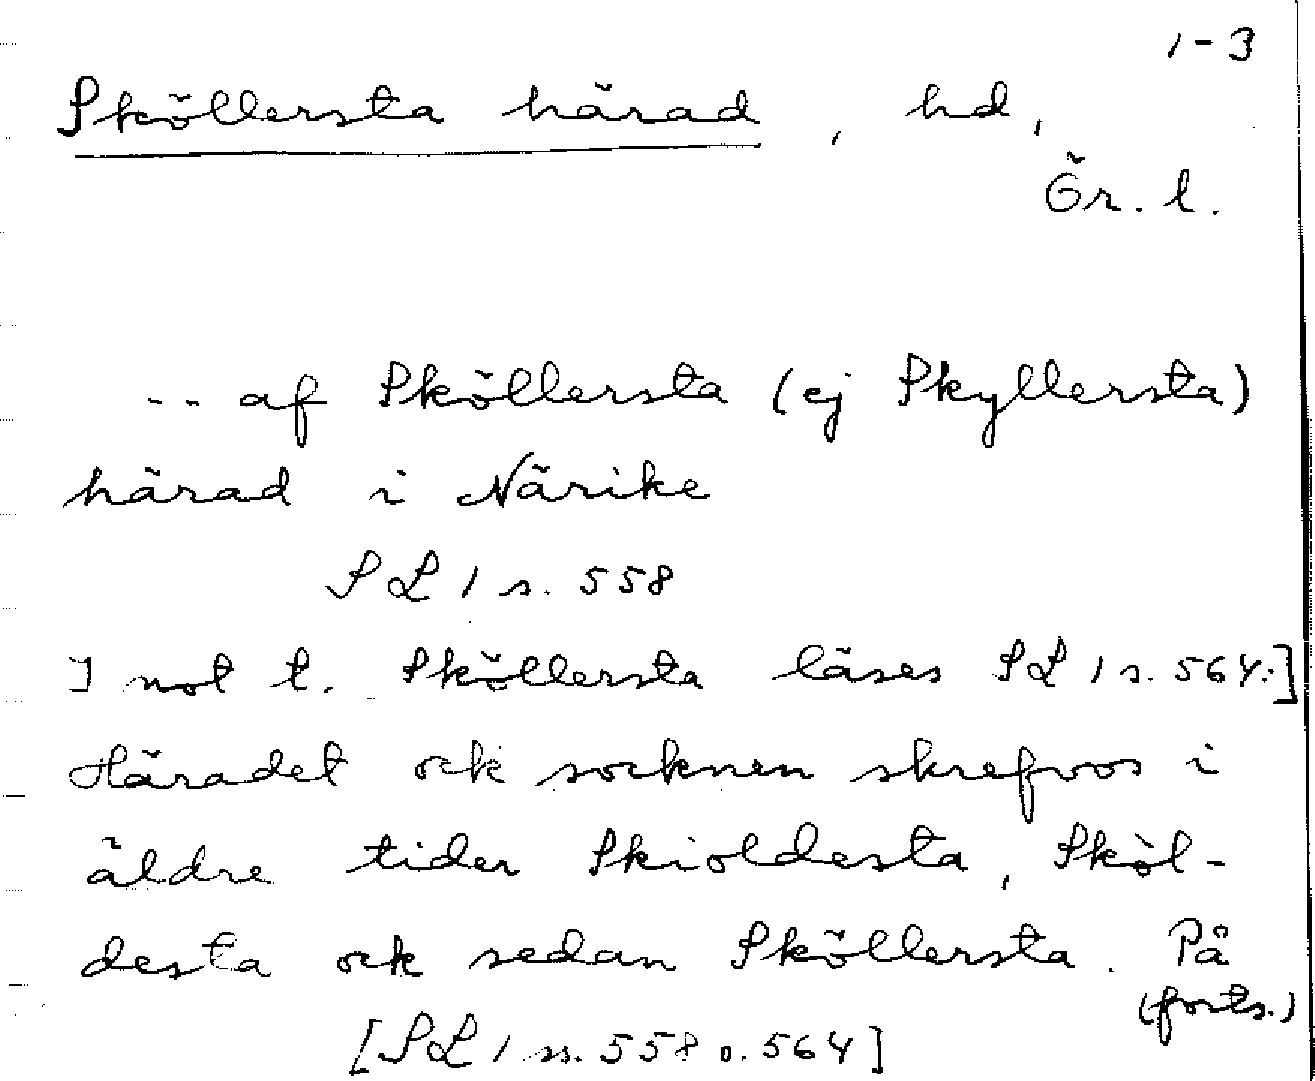 1-3
Sköllersta härad, hd,
Ör. l.
-- af Sköllersta (ej Skyllersta)
härad i Närike
SL 1 s. 558
I not t. Sköllersta läses SL 1 s. 564:]
Häradet ock socknen skrefvos i
äldre tider Skioldesta, Sköl-
desta ock sedan Sköllersta. På
(forts.)
[SL 1 ss. 558 o. 564]